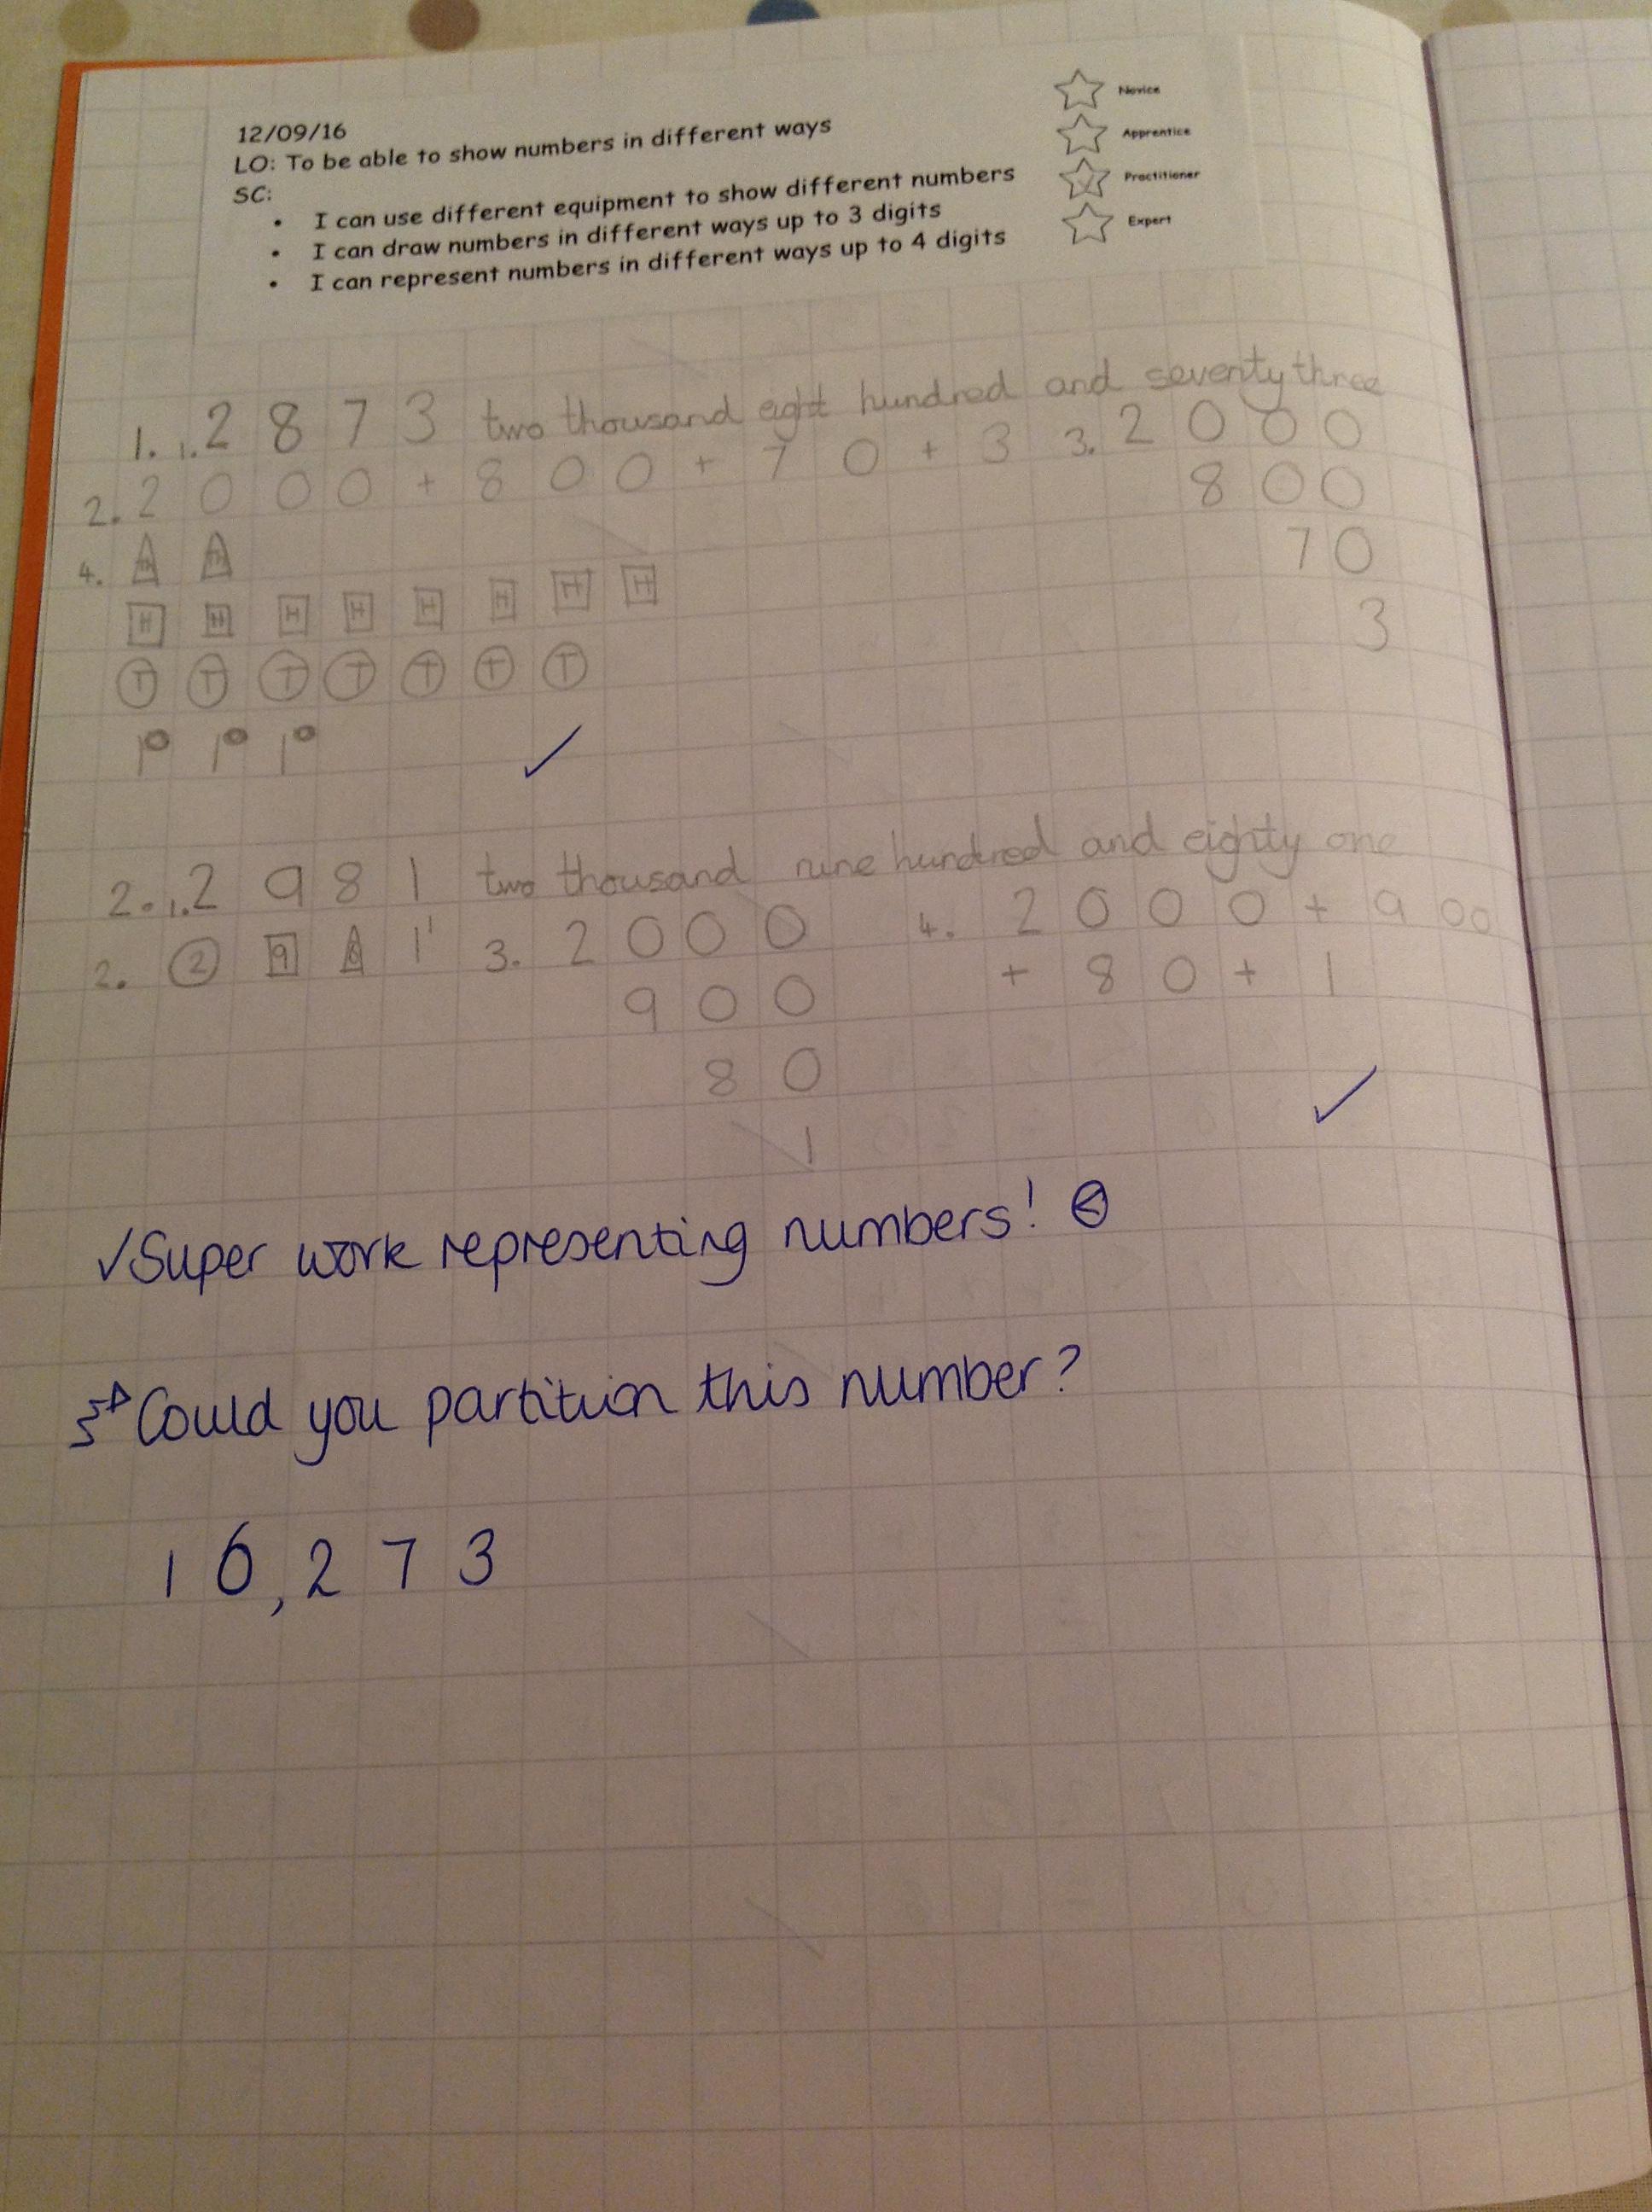 12/09/16
LO: To be able to show numbers in different ways
SC:
• I can use different equipment to show different numbers
• I can draw numbers in different ways up to 3 digits
• I can represent numbers in different ways up to 4 digits
Novice
Apprentice
Practitioner
Expert
1. 1. 2 8 7 3 two thousand eight hundred and seventy three
2. 2 0 0 0 + 8 0 0 + 7 0 + 3 3. 2 0 0 0
8 0 0
7 0
3
4.
H H H H H H H H
T T T T T T T
2. 1. 2 9 8 1 two thousand nine hundred and eighty one
2. 2 9 8 1 3. 2 0 0 0 4. 2 0 0 0 + 9 0 0
9 0 0 + 8 0 + 1
8 0
1
✓ Super work representing numbers!
Could you partition this number?
1 6 , 2 7 3